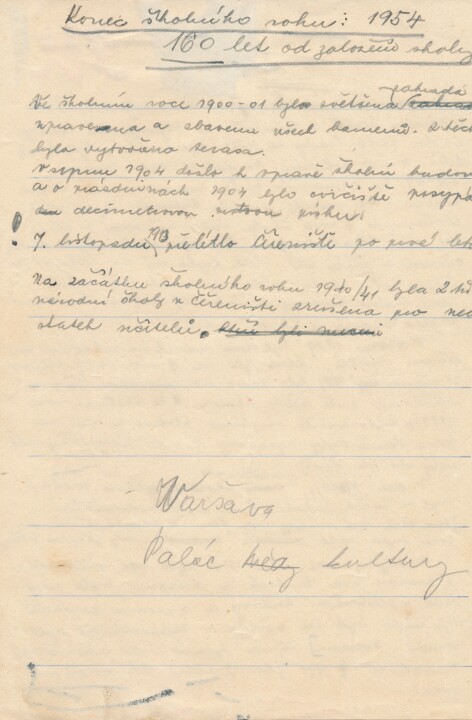 Konec školního roku: 1954
160 let od založení školy
zahrada
Ve školním roce 1900-01 byla zvětšena
upravena a zbavena všech kamenů. Z těch
byla vytvořena terasa.
V srpnu 1904 došlo k opravě školní budov
a o prázdninách 1904 bylo cvičiště posypá
decimetrovou vrstvou písku.
! 7. listopadu 1913 přelétlo Čeřeniště po prvé leta
Na začátku školního roku 1940/41 byla 2 tř
národní školy v Čeřeništi zrušena pro ned
statek učitelů. kteří byli nuceni
Waršava
Palác kultury